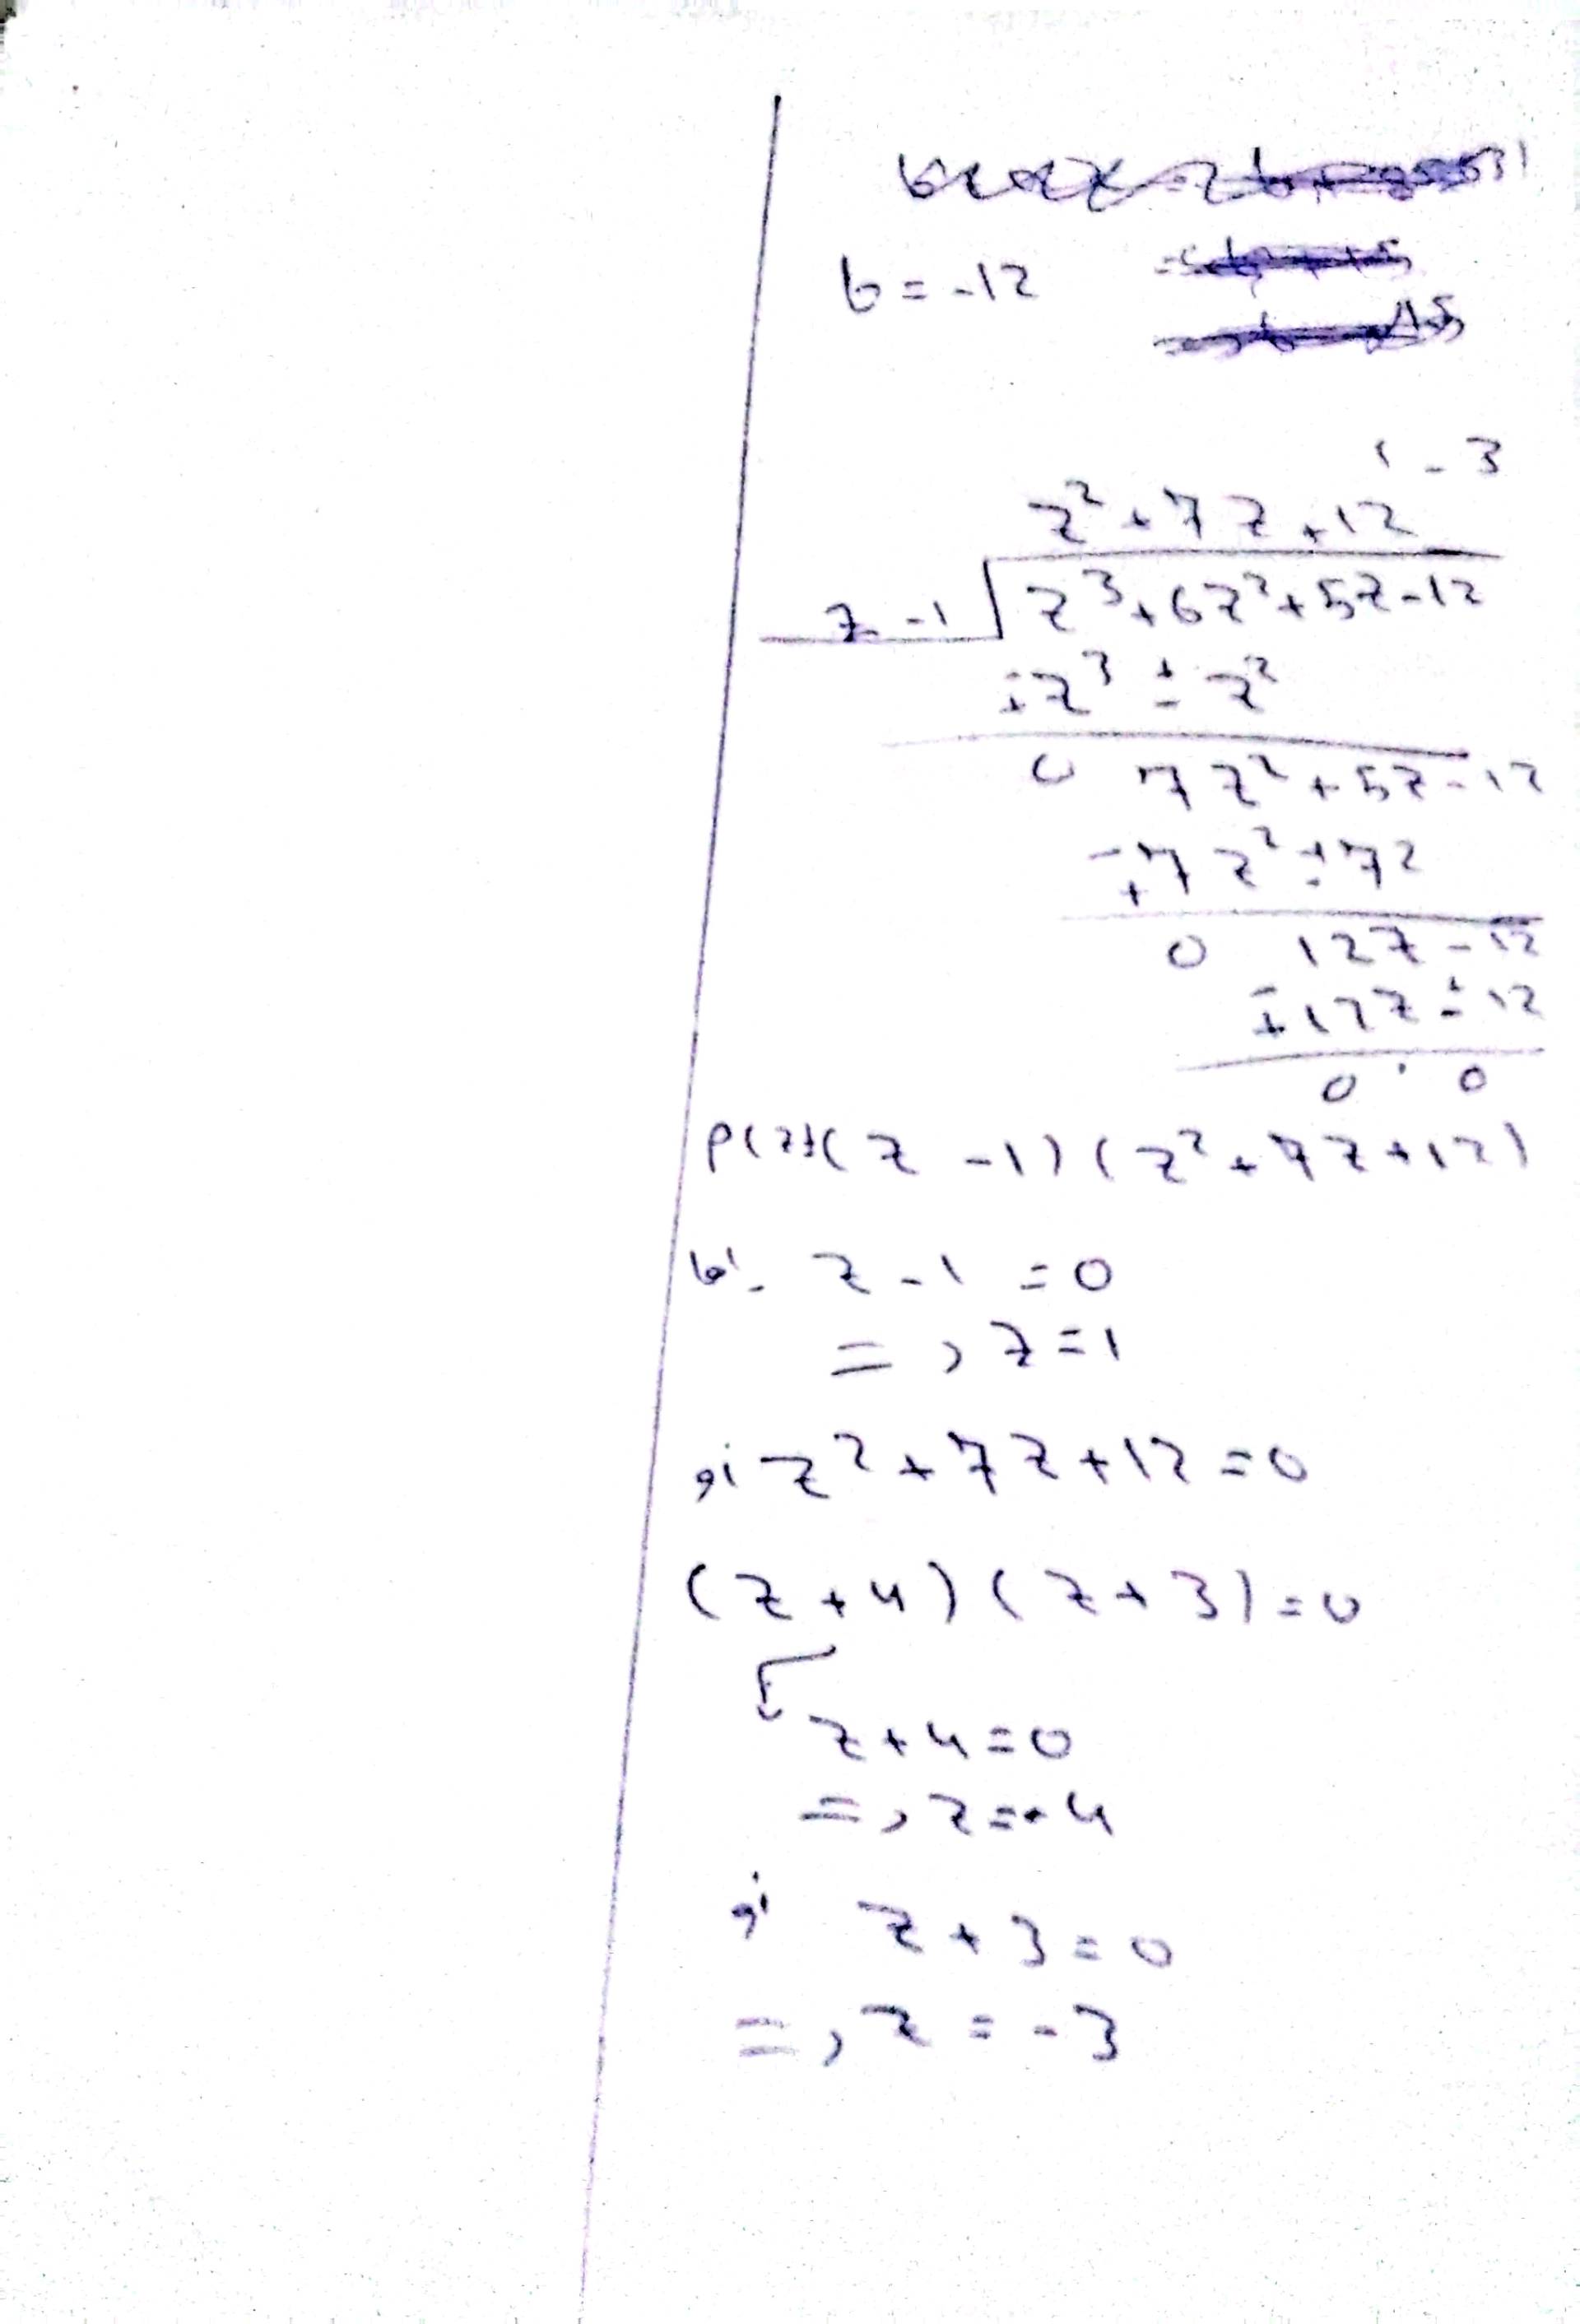 b = -12
- 3
z² + 7z + 12
z - 1 √ z³ + 6z² + 5z - 12
∓z³ ± z²
0 7z² + 5z - 12
∓7z² ± 7z
0 12z - 12
∓12z ± 12
0 0
p(z)=(z - 1)(z² + 7z + 12)
إما z - 1 = 0
=> z = 1
أو z² + 7z + 12 = 0
(z + 4)(z + 3) = 0
z + 4 = 0
=> z = -4
أو z + 3 = 0
=> z = -3